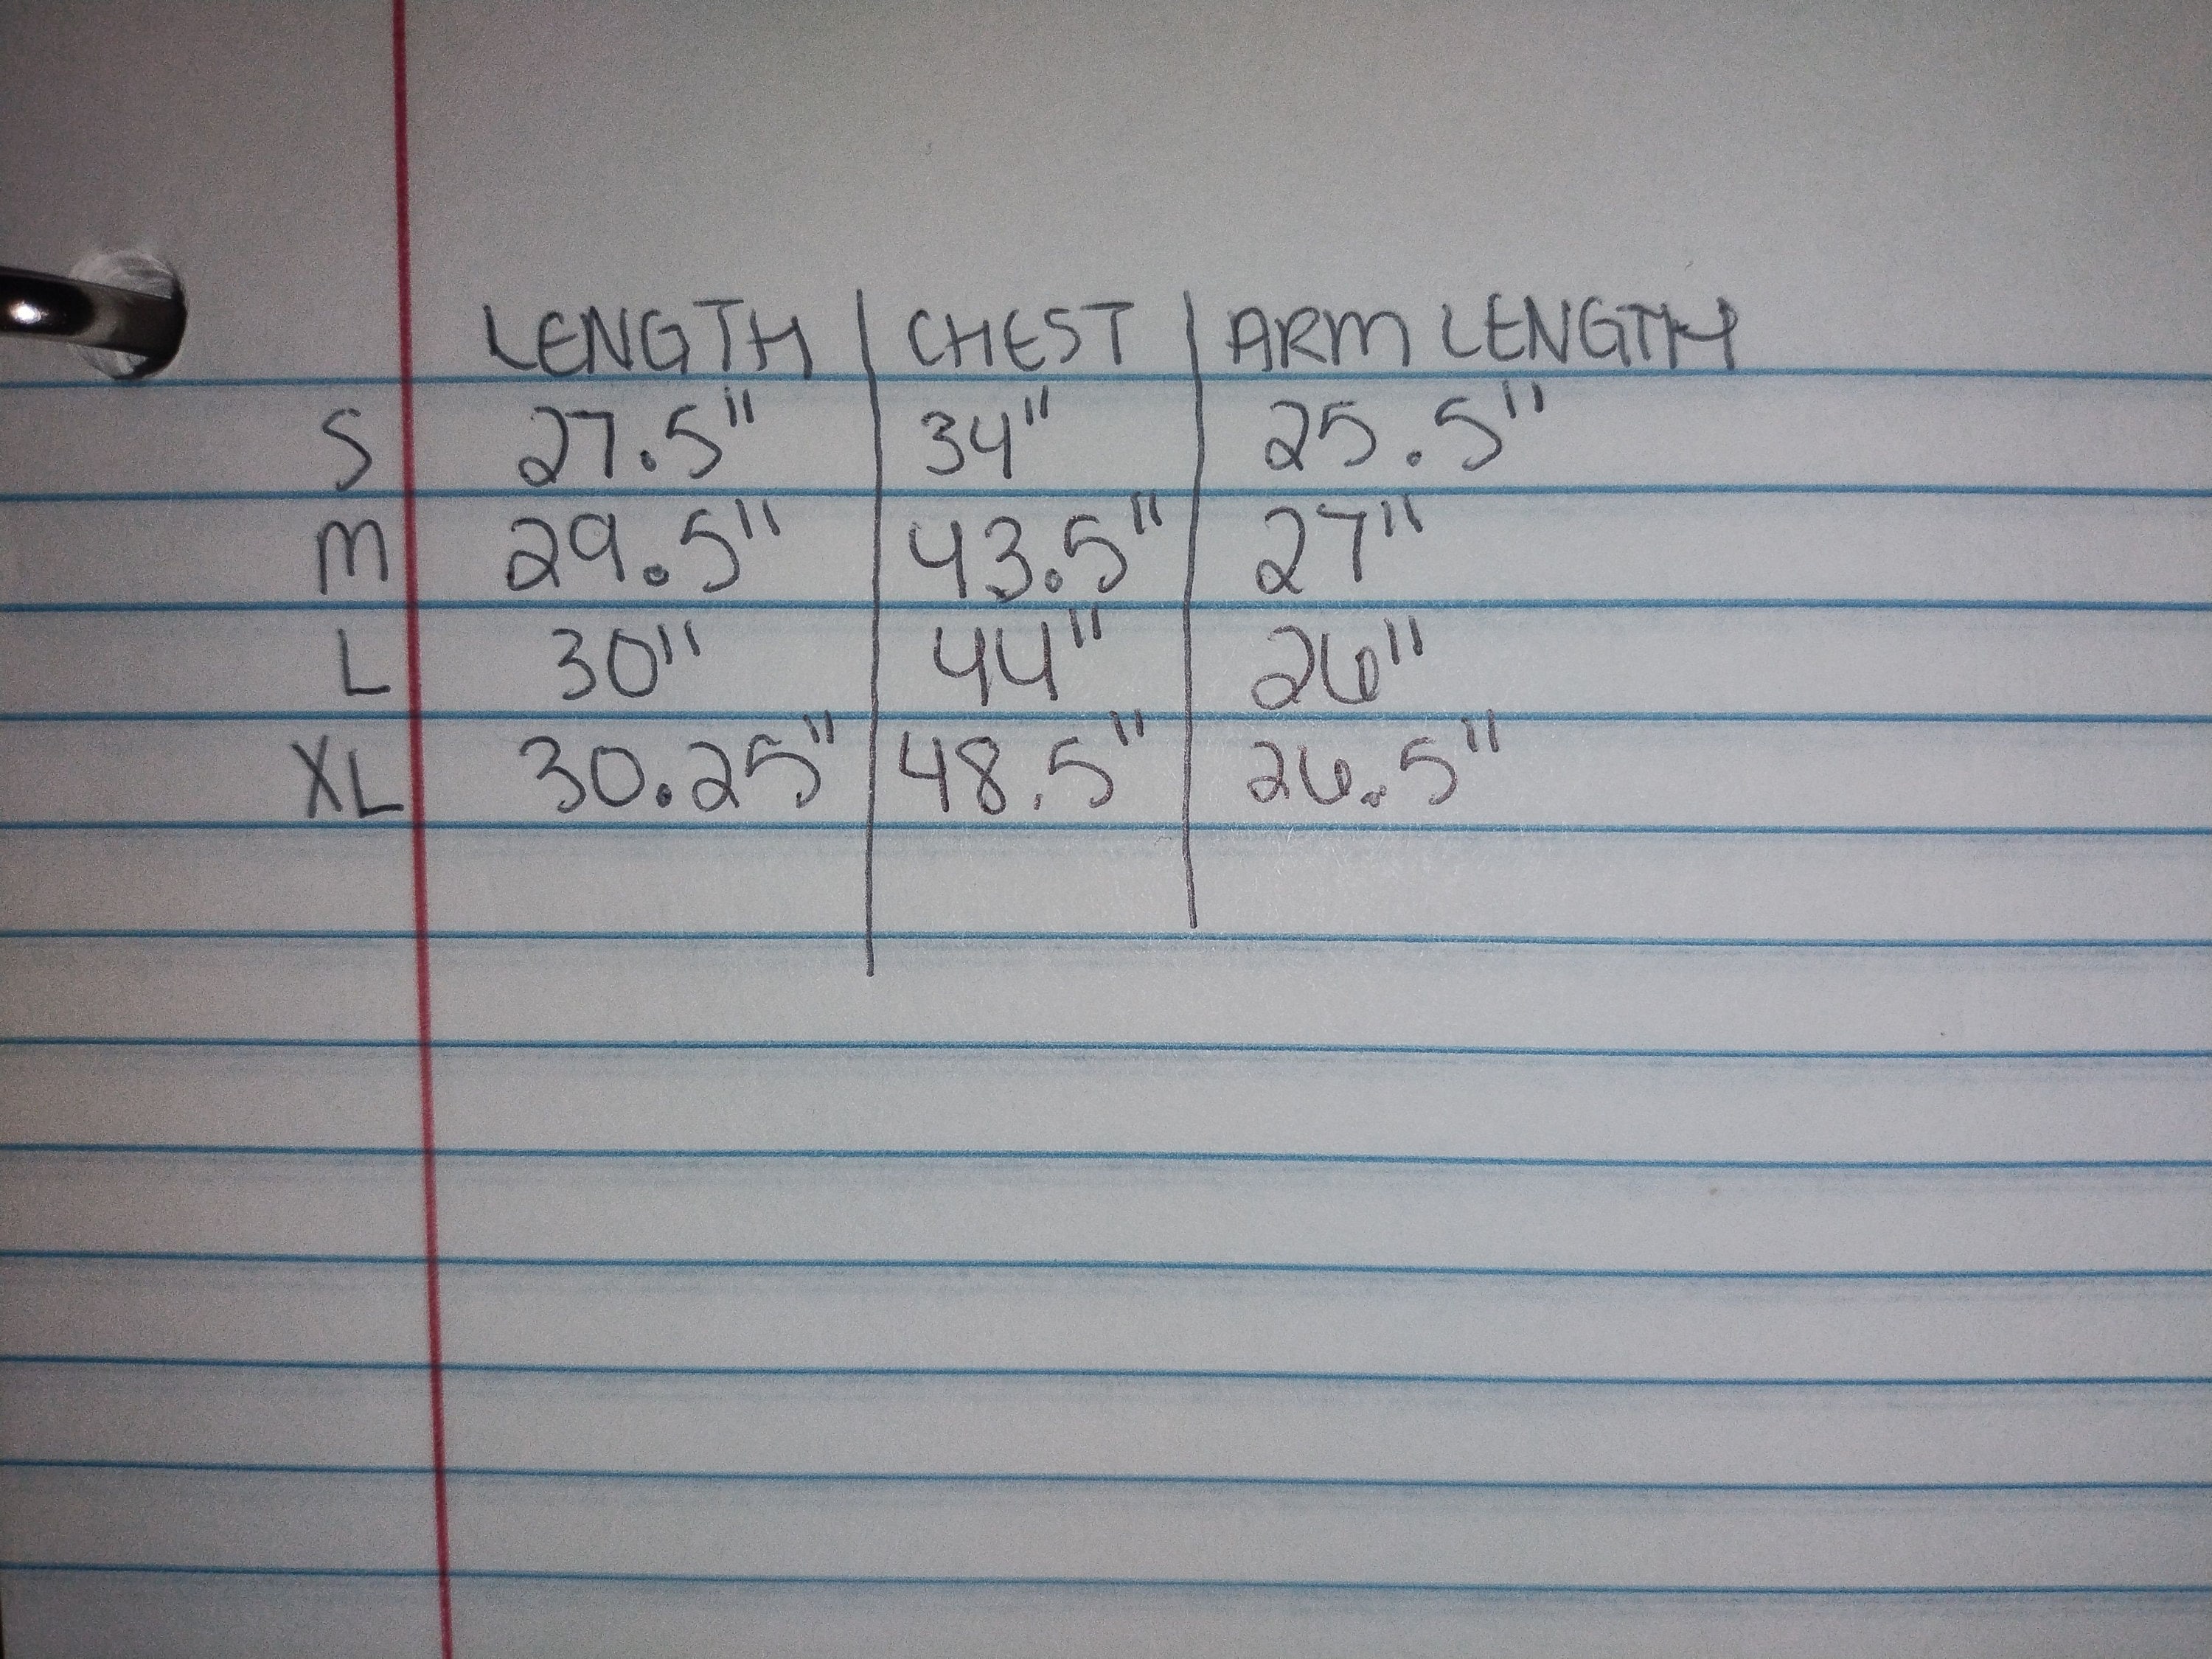 LENGTH | CHEST | ARM LENGTH
S 27.5" | 34" | 25.5"
M 29.5" | 43.5" | 27"
L 30" | 44" | 26"
XL 30.25" | 48.5" | 26.5"